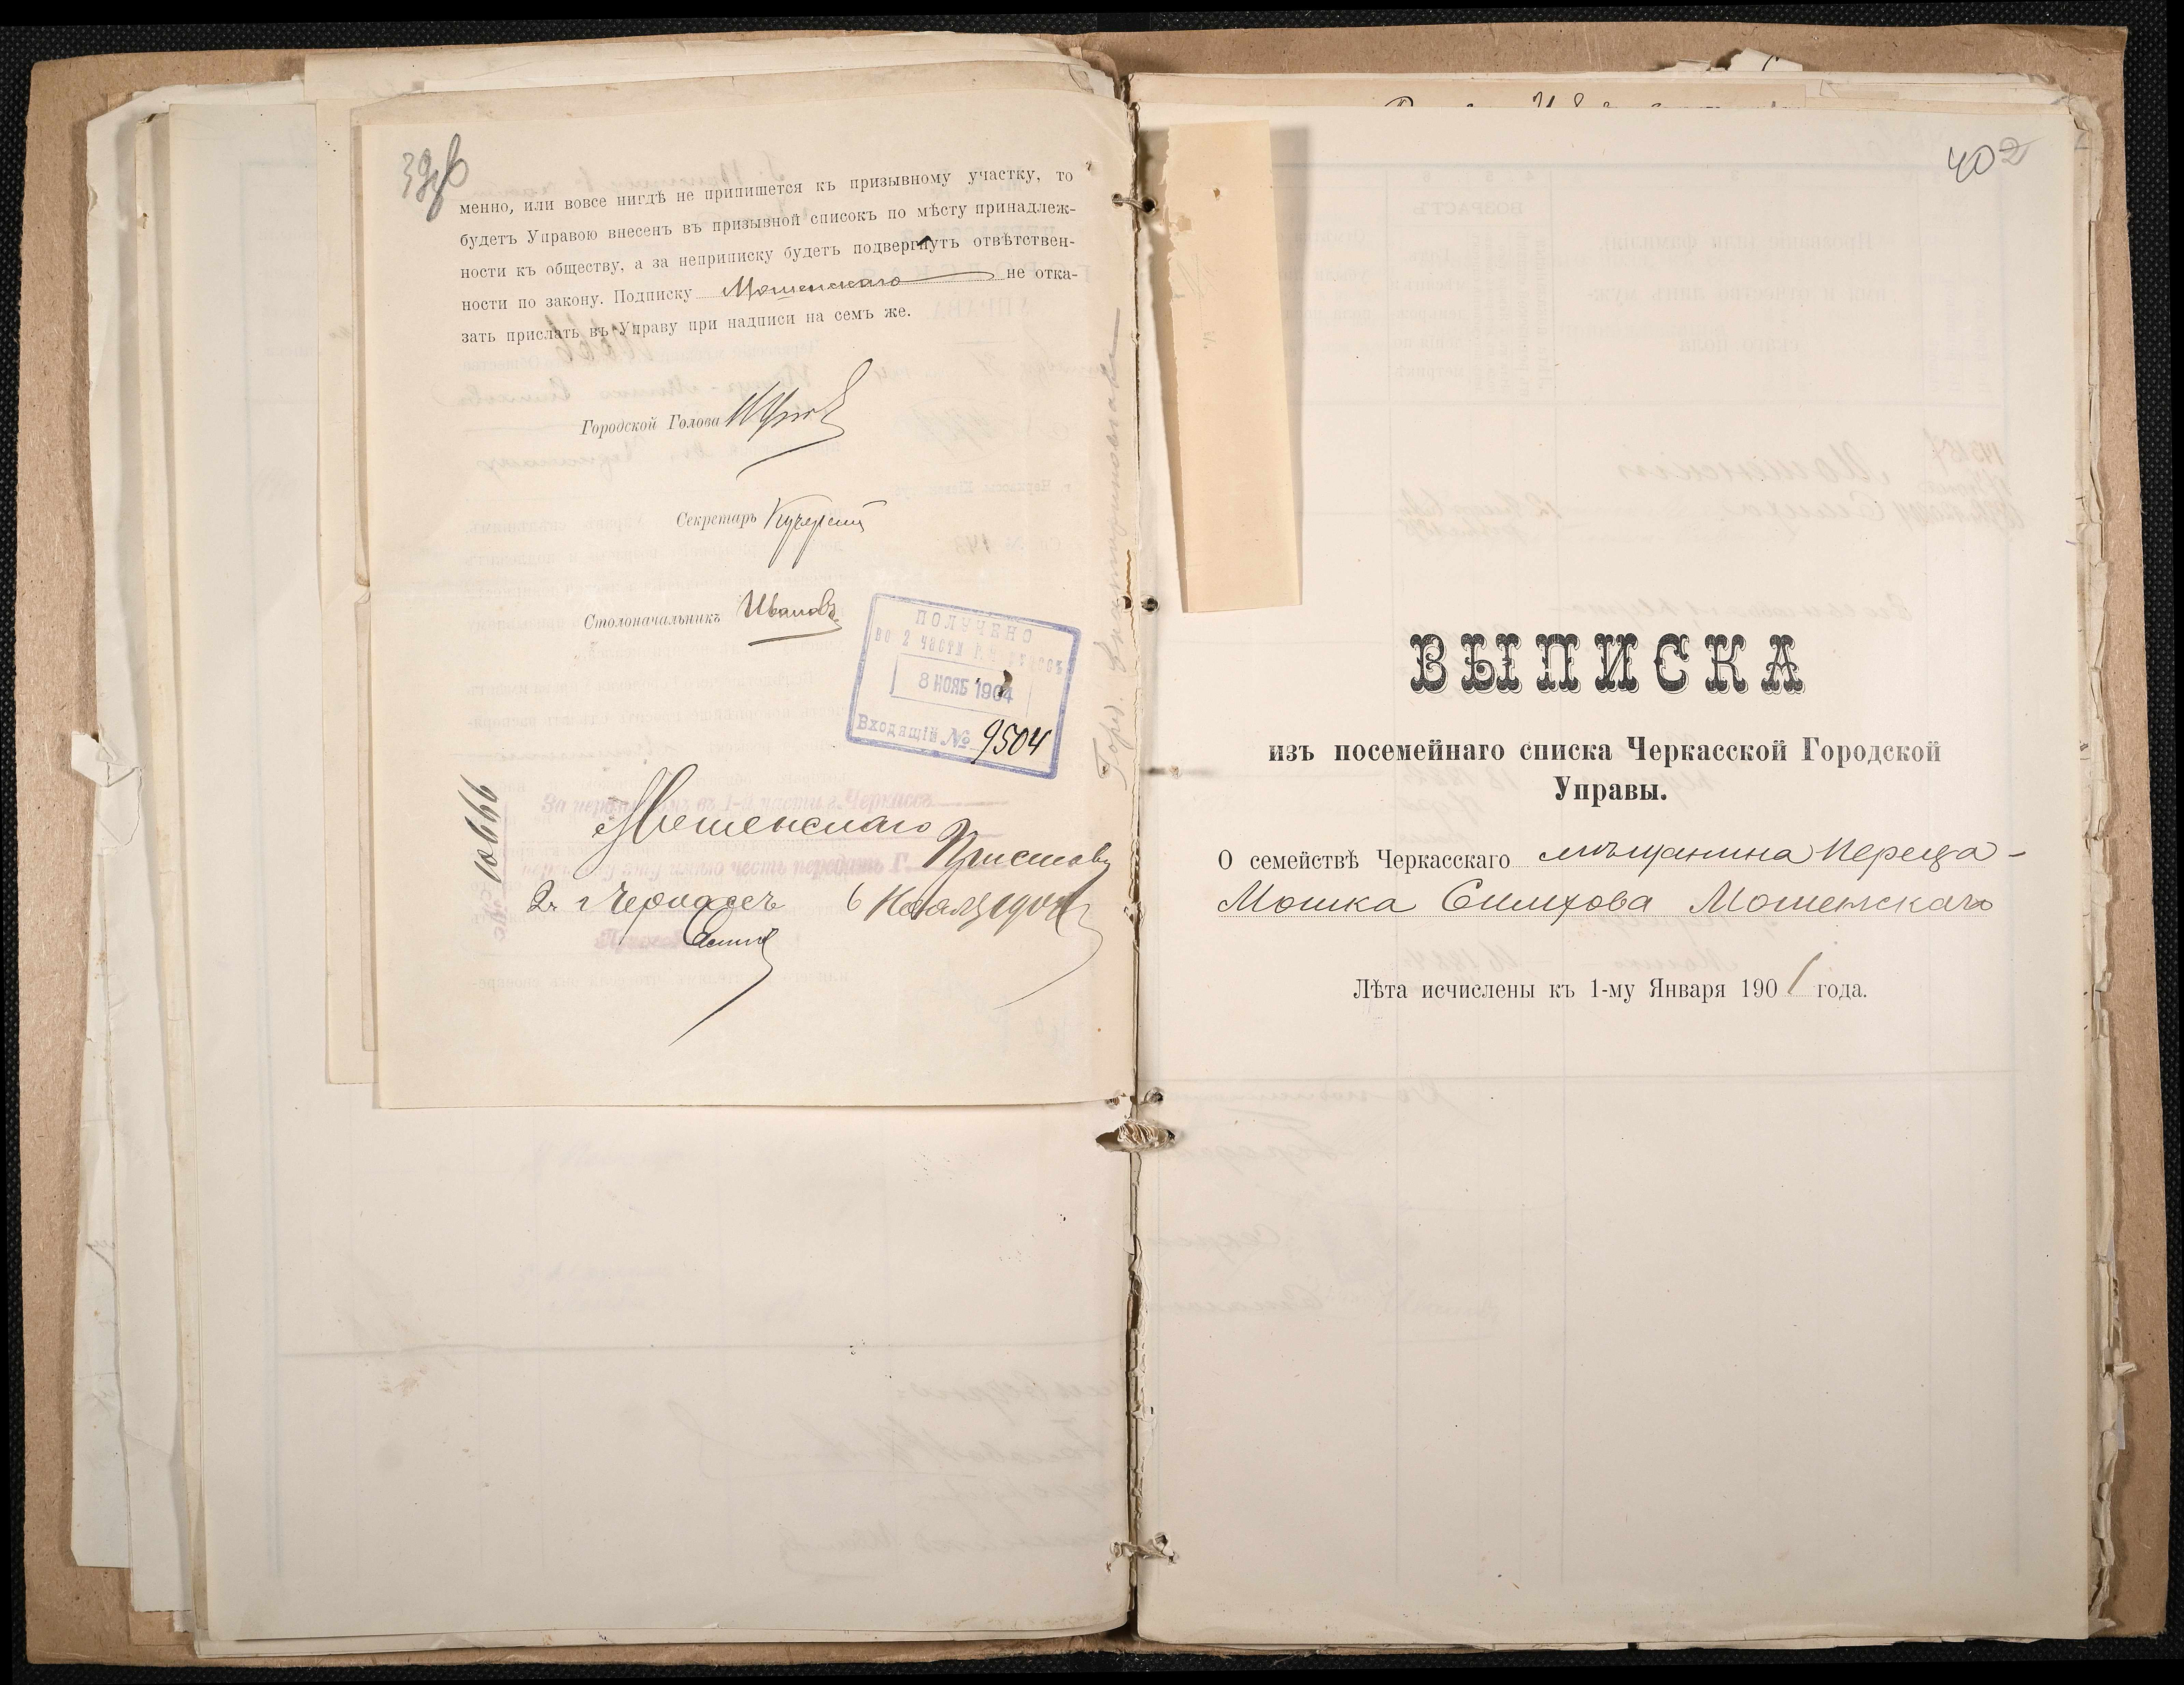 менно, или вовсе нигдѣ не припишется къ призывному участку, то
будетъ Управою внесенъ въ призывной списокъ по мѣсту принадлеж-
ности къ обществу, а за неприписку будетъ подвергнутъ отвѣтствен-
ности по закону. Подписку Мошенскаго не отка-
зать прислать въ Управу при надписи на семъ же.
Городской Голова
Секретарь
Столоначальникъ Ивановъ
ПОЛУЧЕНО
во 2 части г. Черкассъ
8 НОЯБ 1904
Входящій № 9504
10666
За нерозыскомъ въ 1-й части г. Черкассъ
Мошенскаго
честь передать Г. Приставу
2 ч. г. Черкассъ 6 Ноября 1904 г.
402
ВЫПИСКА
изъ посемейнаго списка Черкасской Городской
Управы.
О семействѣ Черкасскаго мѣщанина Переца-
Мошка Симхова Мошенскаго
Лѣта исчислены къ 1-му Января 1901 года.